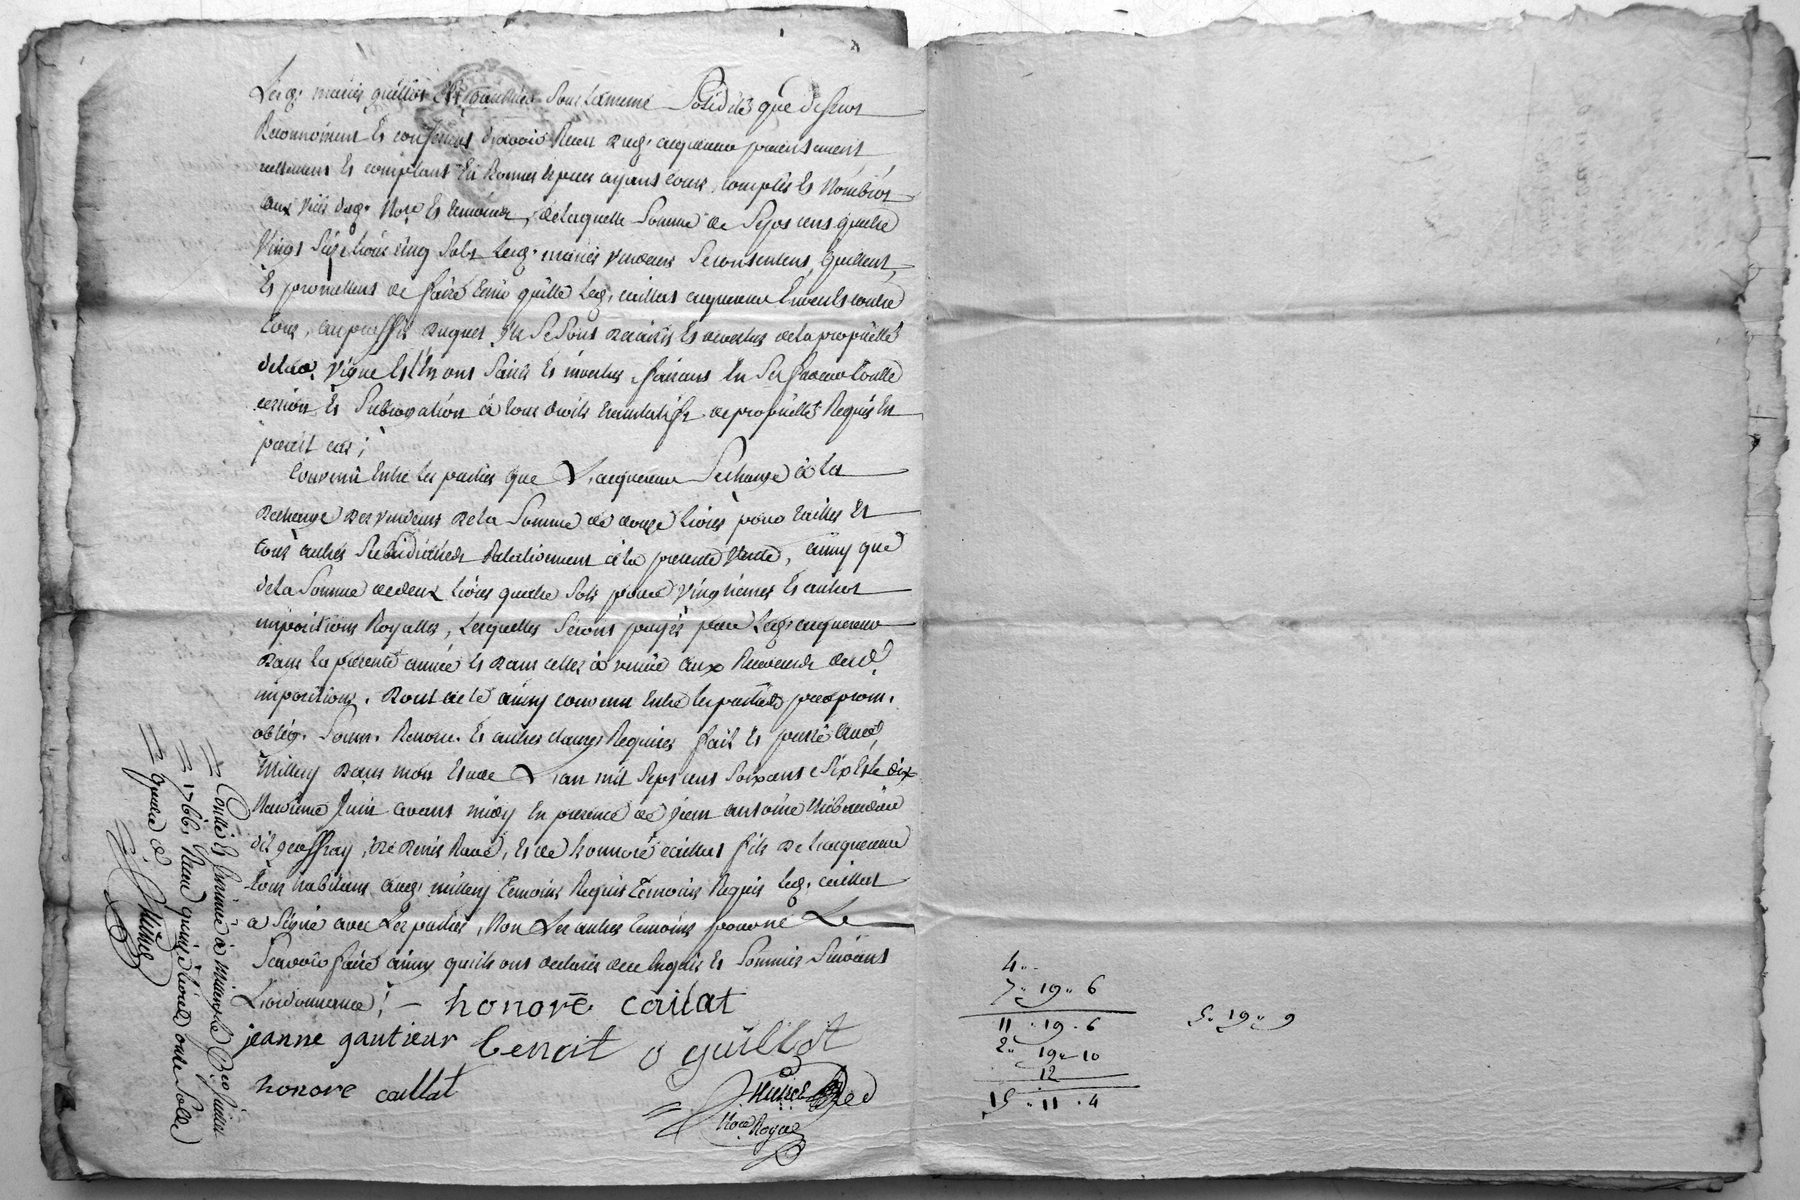 Lesd. mariés guillot Et gautier sous La meme Solidité que dessus
Reconnoissent Et confessent d'avoir Reçu dud. acquereur presentement
reellement Et comptant En bonnes Especes ayans cours, comptés Et Nombrés
aux vües dud. Nore Et temoins, de laquelle Somme de Sept cens quatre
vingt livres cinq Sols Lesd. mariés vendeurs Se contentent, quittent,
Et promettent de faire tenir quitte Led. caillat acquereur Envers Et contre
tous, au proffit duquel Ils Se Sont demis Et devetus de la proprietté
de lad. vigne Et l'En ont Saisis Et investus, faisant En Sa faveur toutte
cession Et Subrogation à tous droits translatifs de proprietté Requis En
pareil cas;
Convenu Entre les parties que L'acquereur Se charge à la
decharge des vendeurs de la Somme de douze livres pour tailles Et
tous autres Subsidiaires Relativement à la presente vente, ainsy que
de la Somme de deux livres quatre Sols pour vingtiemes Et autres
impositions Royalles, Lesquelles Seront payés par Led. acquereur
dans la presente année Et dans celles à venir aux Receveurs desd.
impositions. Dont a eté ainsy convenu Entre les parties par prom.
oblig. Soum. Renon. Et autres clauses Requises fait Et passé aud.
Millery dans mon Etude L'an mil Sept cens Soixante Six Et le dix
Neuvieme Juin avant midy En presence de jean antoine
dit geoffray, de denis Et de honnoré caillat fils de l'acquereur
tous habitans aud. millery temoins Requis temoins Requis led. caillat
a Signé avec Les parties, Non Les autres temoins pour ne Le
Scavoir faire ainsy qu'ils ont declarés de ce Enquis Et Sommés Suivant
L'ordonnance! - honoré cailat
jeanne gautieur benoit guillot
honore caillat
Nore Royal
Controllé Et Insinué à
1766. Reçu quinze livres onze Sols
quatre d.
Michel
4..
7.. 19.. 6
11 . 19 . 6
2.. 19.. 10
12
15 . 11 . 4
5. 19.. 9